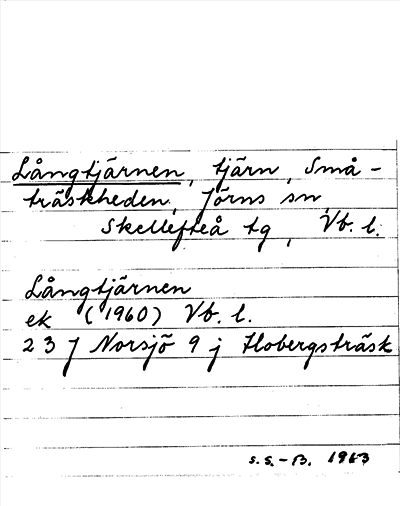 Långtjärnen, tjärn, Små-
träskheden, Jörns sn,
Skellefteå tg, Vb. l.
Långtjärnen
ek (1960) Vb. l.
23 J Norsjö 9 j Hobergsträsk
S.S.-B. 1963